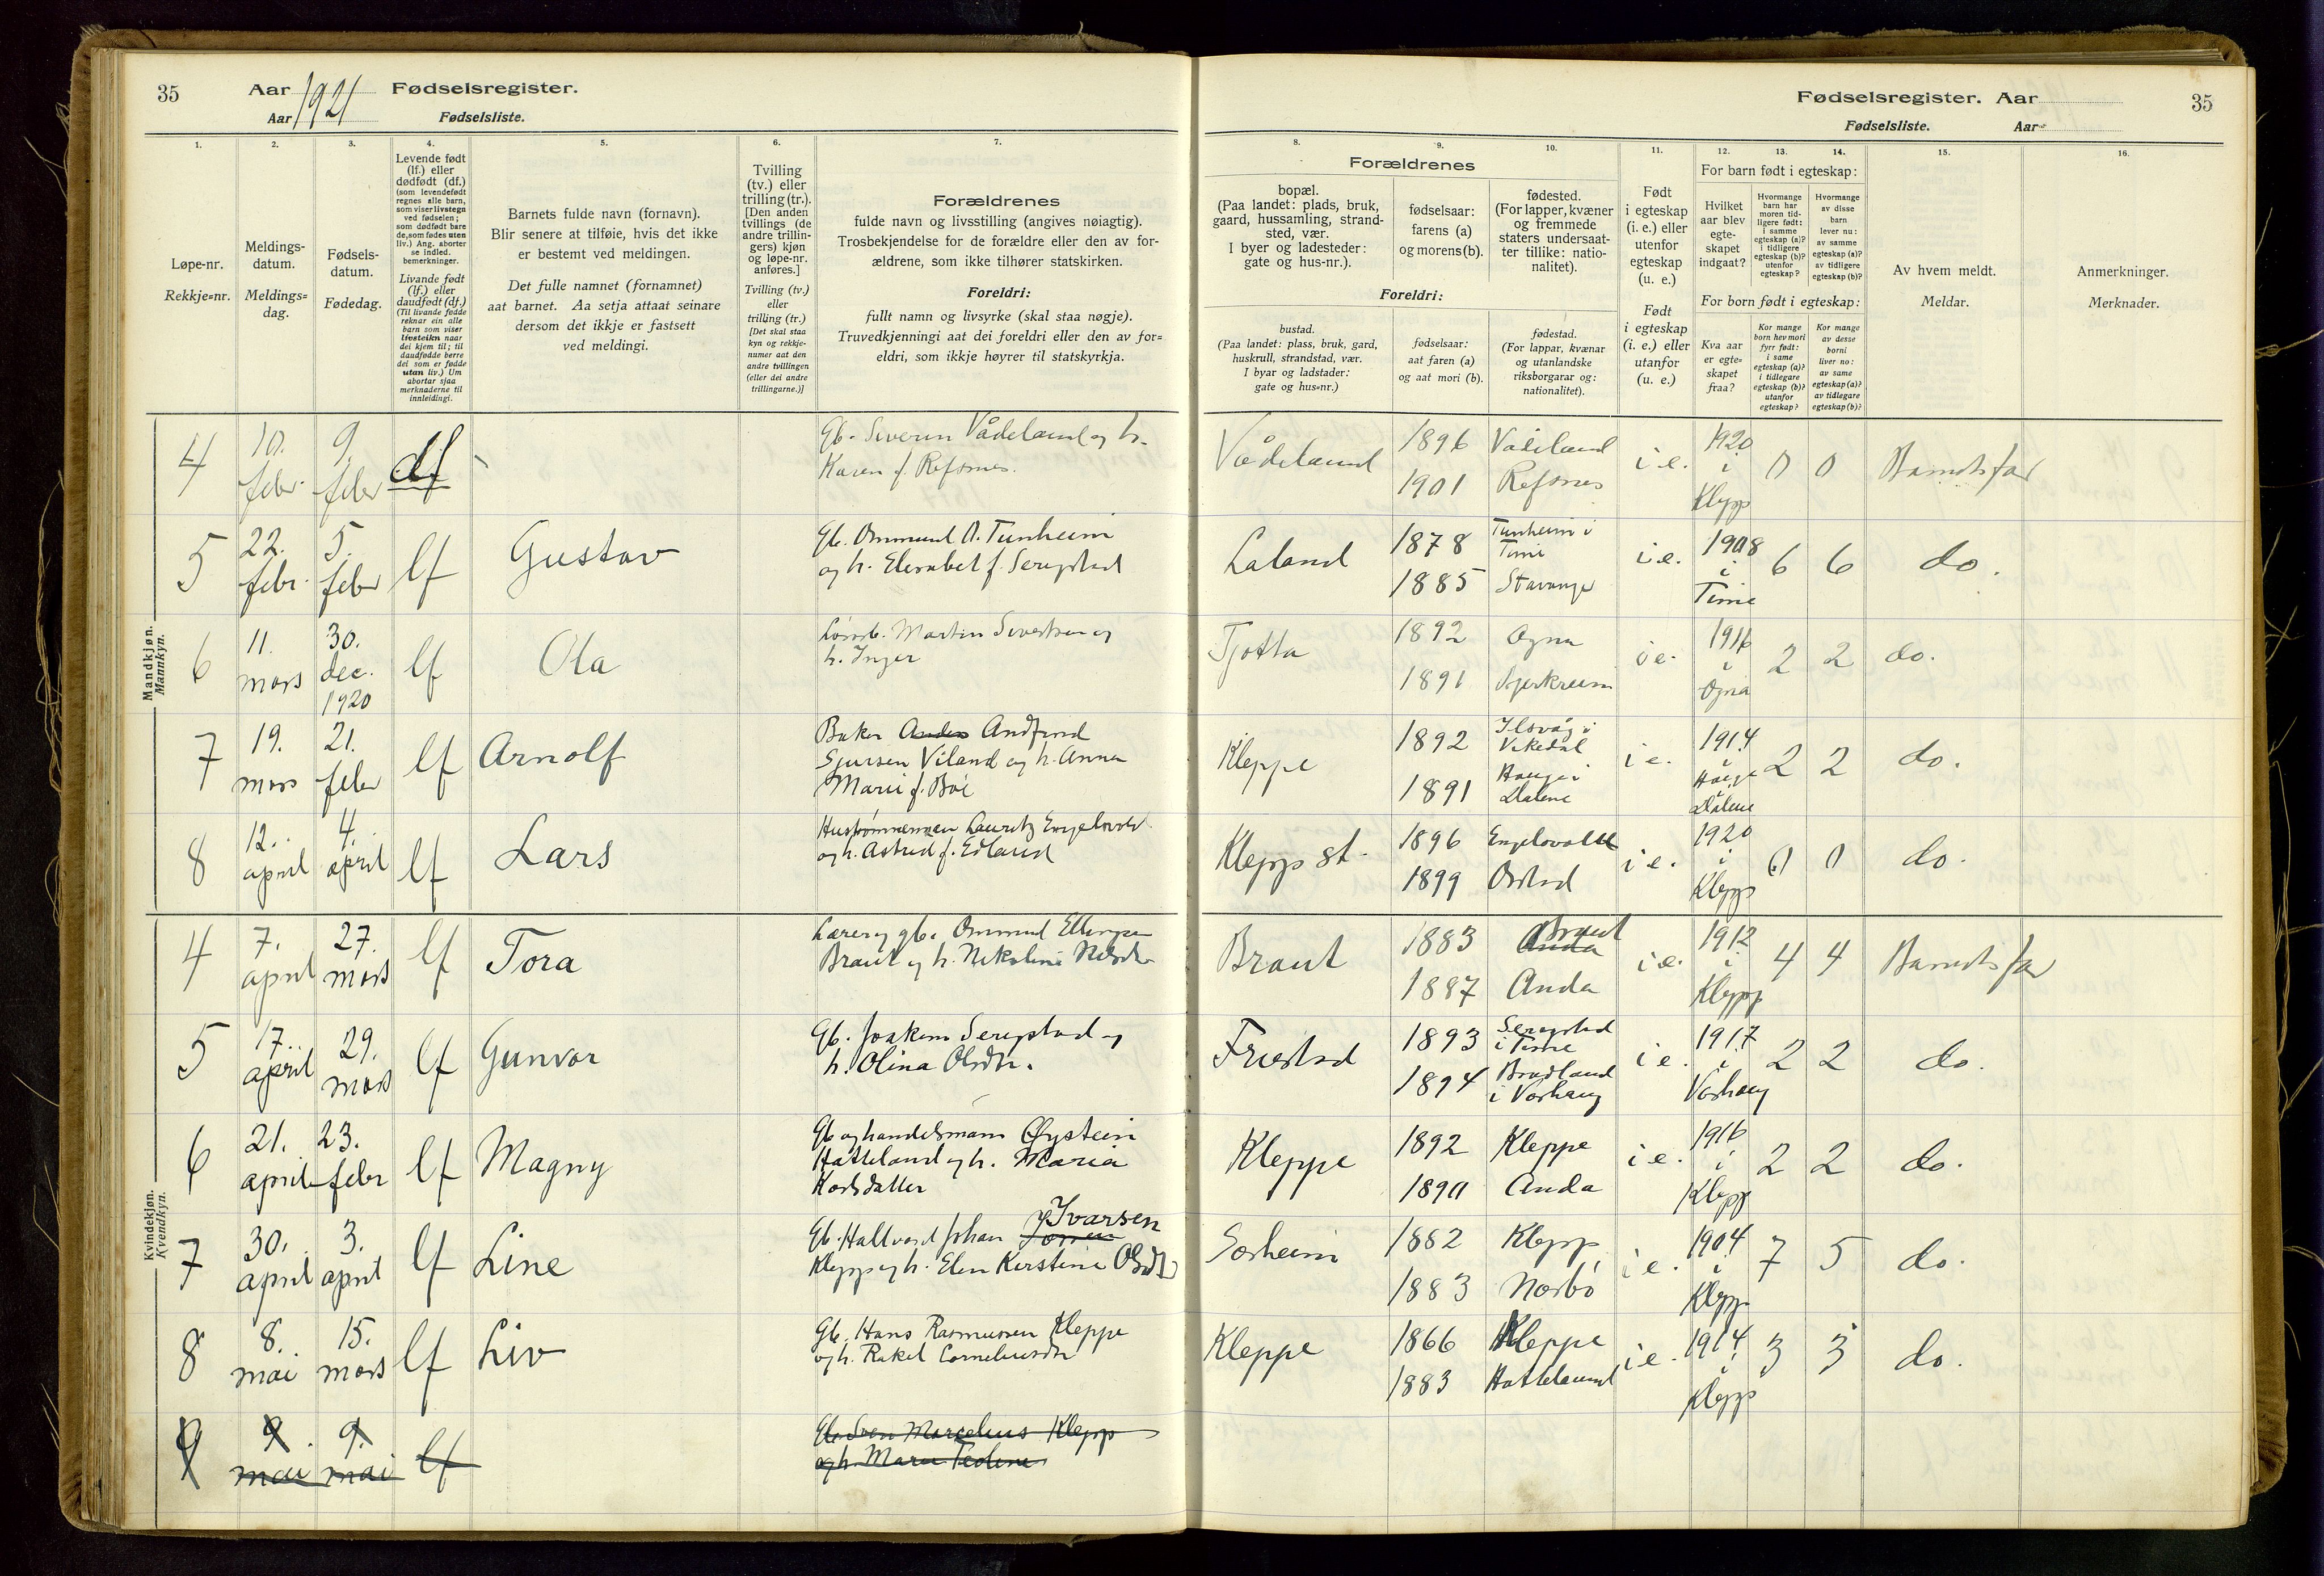 35 Aar 1921 Fødselsregister.
Aar Fødselsliste.
Fødselsregister. Aar 35
Fødselsliste. Aar
1. 2. 3. 4. 5. 6. 7. 8. 9. 10. 11. 12. 13. 14. 15. 16.
Løpe-nr.
Rekkje=nr.
Meldings-
datum.
Meldings=
dag.
Fødsels-
datum.
Fødedag.
Levende født
(lf.) eller
dødfødt (df.)
(som levendefødt
regnes alle barn,
som viser livstegn
ved fødselen;
som dødfødt bare
de, som fødes uten
liv.) Ang. aborter
se indled.
bemerkninger.
Livande født
(lf.) eller
daudfødt (df.)
(Til livande fødde
reknar ein alle
barn som viser
livsteikn naar
dei kjem til; til
daudfødde berre
dei som er fødde
utan liv.) Um
abortar sjaa
merknaderne til
innleidingi.
Barnets fulde navn (fornavn).
Blir senere at tilføie, hvis det ikke
er bestemt ved meldingen.
Det fulle namnet (fornamnet)
aat barnet. Aa setja attaat seinare
dersom det ikkje er fastsett
ved meldingi.
Tvilling
(tv.) eller
trilling (tr.).
[Den anden
tvillings (de
andre trillin-
gers) kjøn
og løpe-nr.
anføres.]
Tvilling (tv.)
eller
trilling (tr.)
[Det skal staa
kyn og rekkje-
numer aat den
andre tvillingen
(eller dei andre
trillingarne.)]
Forældrenes
fulde navn og livsstilling (angives nøiagtig).
Trosbekjendelse for de forældre eller den av for-
ældrene, som ikke tilhører statskirken.
Foreldri:
fullt namn og livsyrke (skal staa nøgje).
Truvedkjenningi aat dei foreldri eller den av for=
eldri, som ikkje høyrer til statskyrkja.
Forældrenes
bopæl.
(Paa landet: plads, bruk,
gaard, hussamling, strand-
sted, vær.
I byer og ladesteder:
gate og hus-nr.).
fødselsaar:
farens (a)
og morens (b).
fødested.
(For lapper, kvæner
og fremmede
staters undersaat-
ter tillike: natio-
nalitet).
Foreldri:
bustad.
(Paa landet: plass, bruk, gard,
huskrull, strandstad, vær.
I byar og ladstader:
gate og hus=nr.)
fødselsaar:
aat faren (a)
og aat mori (b).
fødestad.
(For lappar, kvænar
og utanlandske
riksborgarar og:
nationalitet).
Født
i egteskap
(i. e.) eller
utenfor
egteskap
(u. e.)
Født
i egteskap
(i. e.) eller
utanfor
(u. e.)
For barn født i egteskap:
Hvilket
aar blev
egte-
skapet
indgaat?
Hvormange
barn har
moren tid-
ligere født:
i samme
egteskap (a)?
i tidligere
egteskap (b)?
utenfor
egteskap?
Hvormange
av disse
barn
lever nu:
av samme
egteskap (a)?
av tidligere
egteskap (b)?
For born født i egteskap:
Kva aar
er egte=
skapet
fraa?
Kor mange
born hev mori
fyrr født:
i same
egteskap (a)?
i tidlegare
egteskap (b)?
utanfor
egteskap?
Kor mange
av desse
borni
liver no:
av same
egteskap (a)?
av tidlegare
egteskap (b)?
Av hvem meldt.
Meldar.
Anmerkninger.
Merknader.
Mandkjøn.
Mannkyn.
4 10. febr. 9. febr df Gb. Severin Vådeland og h.
Karen f. Refsnes. Vådeland 1896 Vådeland i.e. 1920 i Klepp 0 0 Barnets far
1901 Refsnes
5 22. febr. 5. febr lf Gustav Gb. Ommund A. Tunheim
og h. Elisabet f. Serigstad Laland 1878 Tunheim i Time i.e. 1908 i Time 6 6 do.
1885 Stavanger
6 11. mars 30. dec. 1920 lf Ola Martin Sivertsen og
h. Inger Tjøtta 1892 Ogna i.e. 1916 i Ogna 2 2 do.
1891 Bjerkreim
7 19. mars 21. febr lf Arnolf Baker Andfind
Sjursen Viland og h. Anna
Marie f. Bøe Kleppe 1892 Ilsvåg i Vikedal i.e. 1914 i Hauge i Dalene 2 2 do.
1891 Hauge i Dalene
8 12. april 4. april lf Lars Lauritz Engelsvold
og h. Astrid f. Edland Klepp st. 1896 Engelsvold i.e. 1920 i Klepp 0 0 do.
1899 Orstad
Kvindekjøn.
Kvendkyn.
4 7. april 27. mars lf Tora Lærer og gb. Ommund Ellingsen
Braut og h. Nikoline Nilsdtr Braut 1883 Anda Braut i.e. 1912 i Klepp 4 4 Barnets far
1887 Anda
5 17. april 29. mars lf Gunvor Gb. Joakim Serigstad og
h. Olina Olsdtr. Friestad 1893 Serigstad i Time i.e. 1917 i Varhaug 2 2 do.
1894 Brudland i Varhaug
6 21. april 23. febr lf Magny Gb og handelsmann Øystein
Hatteland og h. Maria
Karlsdatter Kleppe 1892 Kleppe i.e. 1916 i Klepp 2 2 do.
1890 Anda
7 30. april 3. april lf Line Gb. Hallvard Johan Ivarsen
Klepp og h. Elen Kirstine Olsdtr Sørheim 1882 Klepp i.e. 1904 i Klepp 7 5 do.
1883 Nærbø
8 8. mai 15. mars lf Liv Gb. Hans Rasmussen Kleppe
og h. Rakel Corneliusdtr Kleppe 1866 Kleppe i.e. 1914 i Klepp 3 3 do.
1883 Hatteland
9 9. mai 9. mai lf Gb Sven Marselius Klepp
og h. Maria Teoline